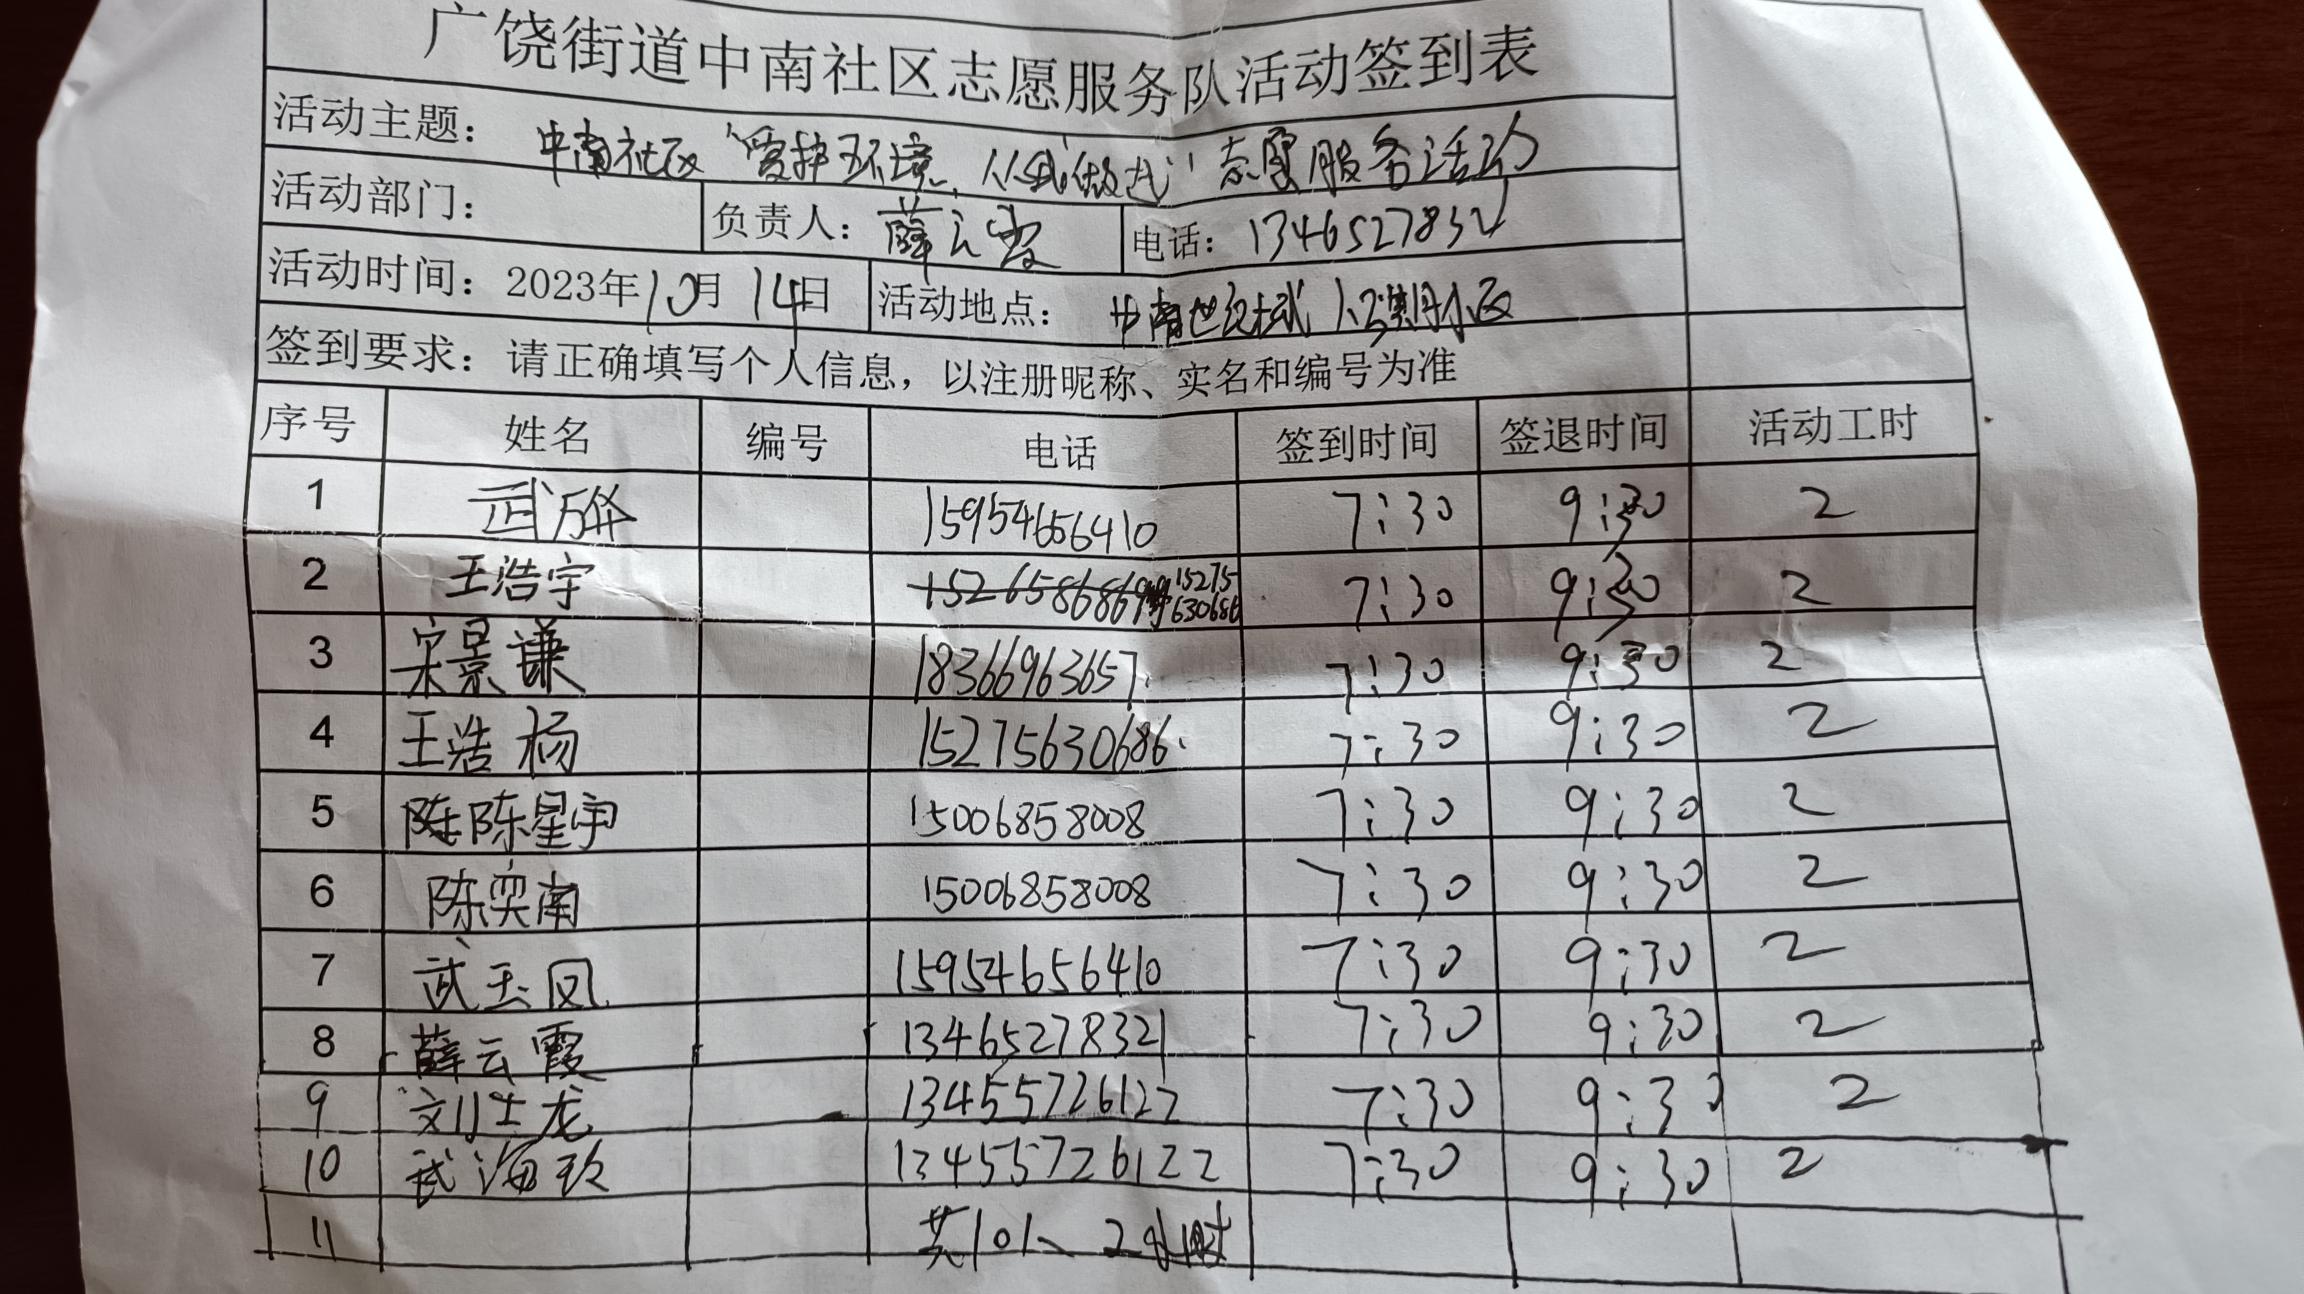 广饶街道中南社区志愿服务队活动签到表
活动主题： 中南社区"爱护环境，从我做起"志愿服务活动
活动部门： 负责人：薛云霞 电话：13465278321
活动时间：2023年10月14日 活动地点：中南世纪城1.2.3期小区
签到要求：请正确填写个人信息，以注册昵称、实名和编号为准
序号 姓名 编号 电话 签到时间 签退时间 活动工时
1 武万华 15954656410 7:30 9:30 2
2 王浩宇 15275630686 7:30 9:30 2
3 宋景谦 18366963657 7:30 9:30 2
4 王浩杨 15275630686 7:30 9:30 2
5 陈星宇 15006858008 7:30 9:30 2
6 陈奕南 15006858008 7:30 9:30 2
7 武玉凤 15954656410 7:30 9:30 2
8 薛云霞 13465278321 7:30 9:30 2
9 刘士龙 13455726122 7:30 9:30 2
10 武海玲 13455726122 7:30 9:30 2
11 共10人 2小时